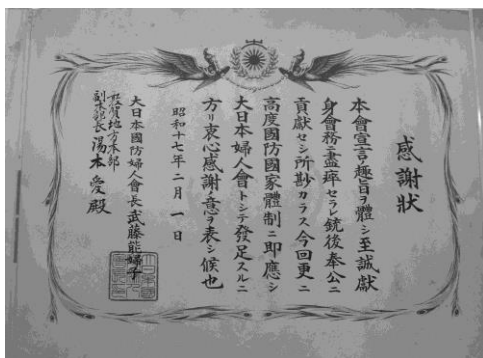 感謝狀
本會宣言ノ趣旨ヲ體シ至誠獻
身會務ニ盡瘁セラレ銃後奉公ニ
貢獻セシ所尠カラス今回更ニ
高度國防國家體制ニ即應シ
大日本婦人會トシテ發足スルニ
方リ衷心感謝ノ意ヲ表シ候也
昭和十七年二月一日
大日本國防婦人會長武藤能婦子
地方本部
副本部長湯本愛殿